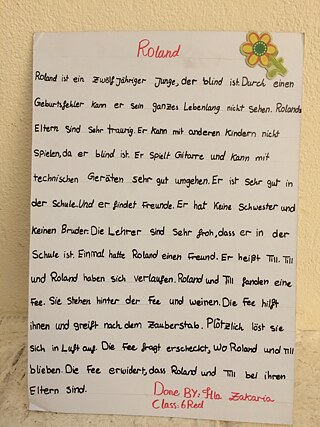 Roland
Roland ist ein zwölfjähriger Junge, der blind ist. Durch einen
Geburtsfehler kann er sein ganzes Lebenlang nicht sehen. Rolands
Eltern sind sehr traurig. Er kann mit anderen Kindern nicht
spielen, da er blind ist. Er spielt Gitarre und kann mit
technischen Geräten sehr gut umgehen. Er ist sehr gut in
der Schule. Und er findet Freunde. Er hat keine Schwester und
keinen Bruder. Die Lehrer sind sehr froh, dass er in der
Schule ist. Einmal hatte Roland einen Freund. Er heißt Till. Till
und Roland haben sich verlaufen. Roland und Till fanden eine
Fee. Sie stehen hinter der Fee und weinen. Die Fee hilft
ihnen und greift nach dem Zauberstab. Plötzlich löst sie
sich in Luft auf. Die Fee fragt erschreckt, wo Roland und Till
blieben. Die Fee erwidert, dass Roland und Till bei ihren
Eltern sind.
Done BY: Zakaria
Class: 6 Red